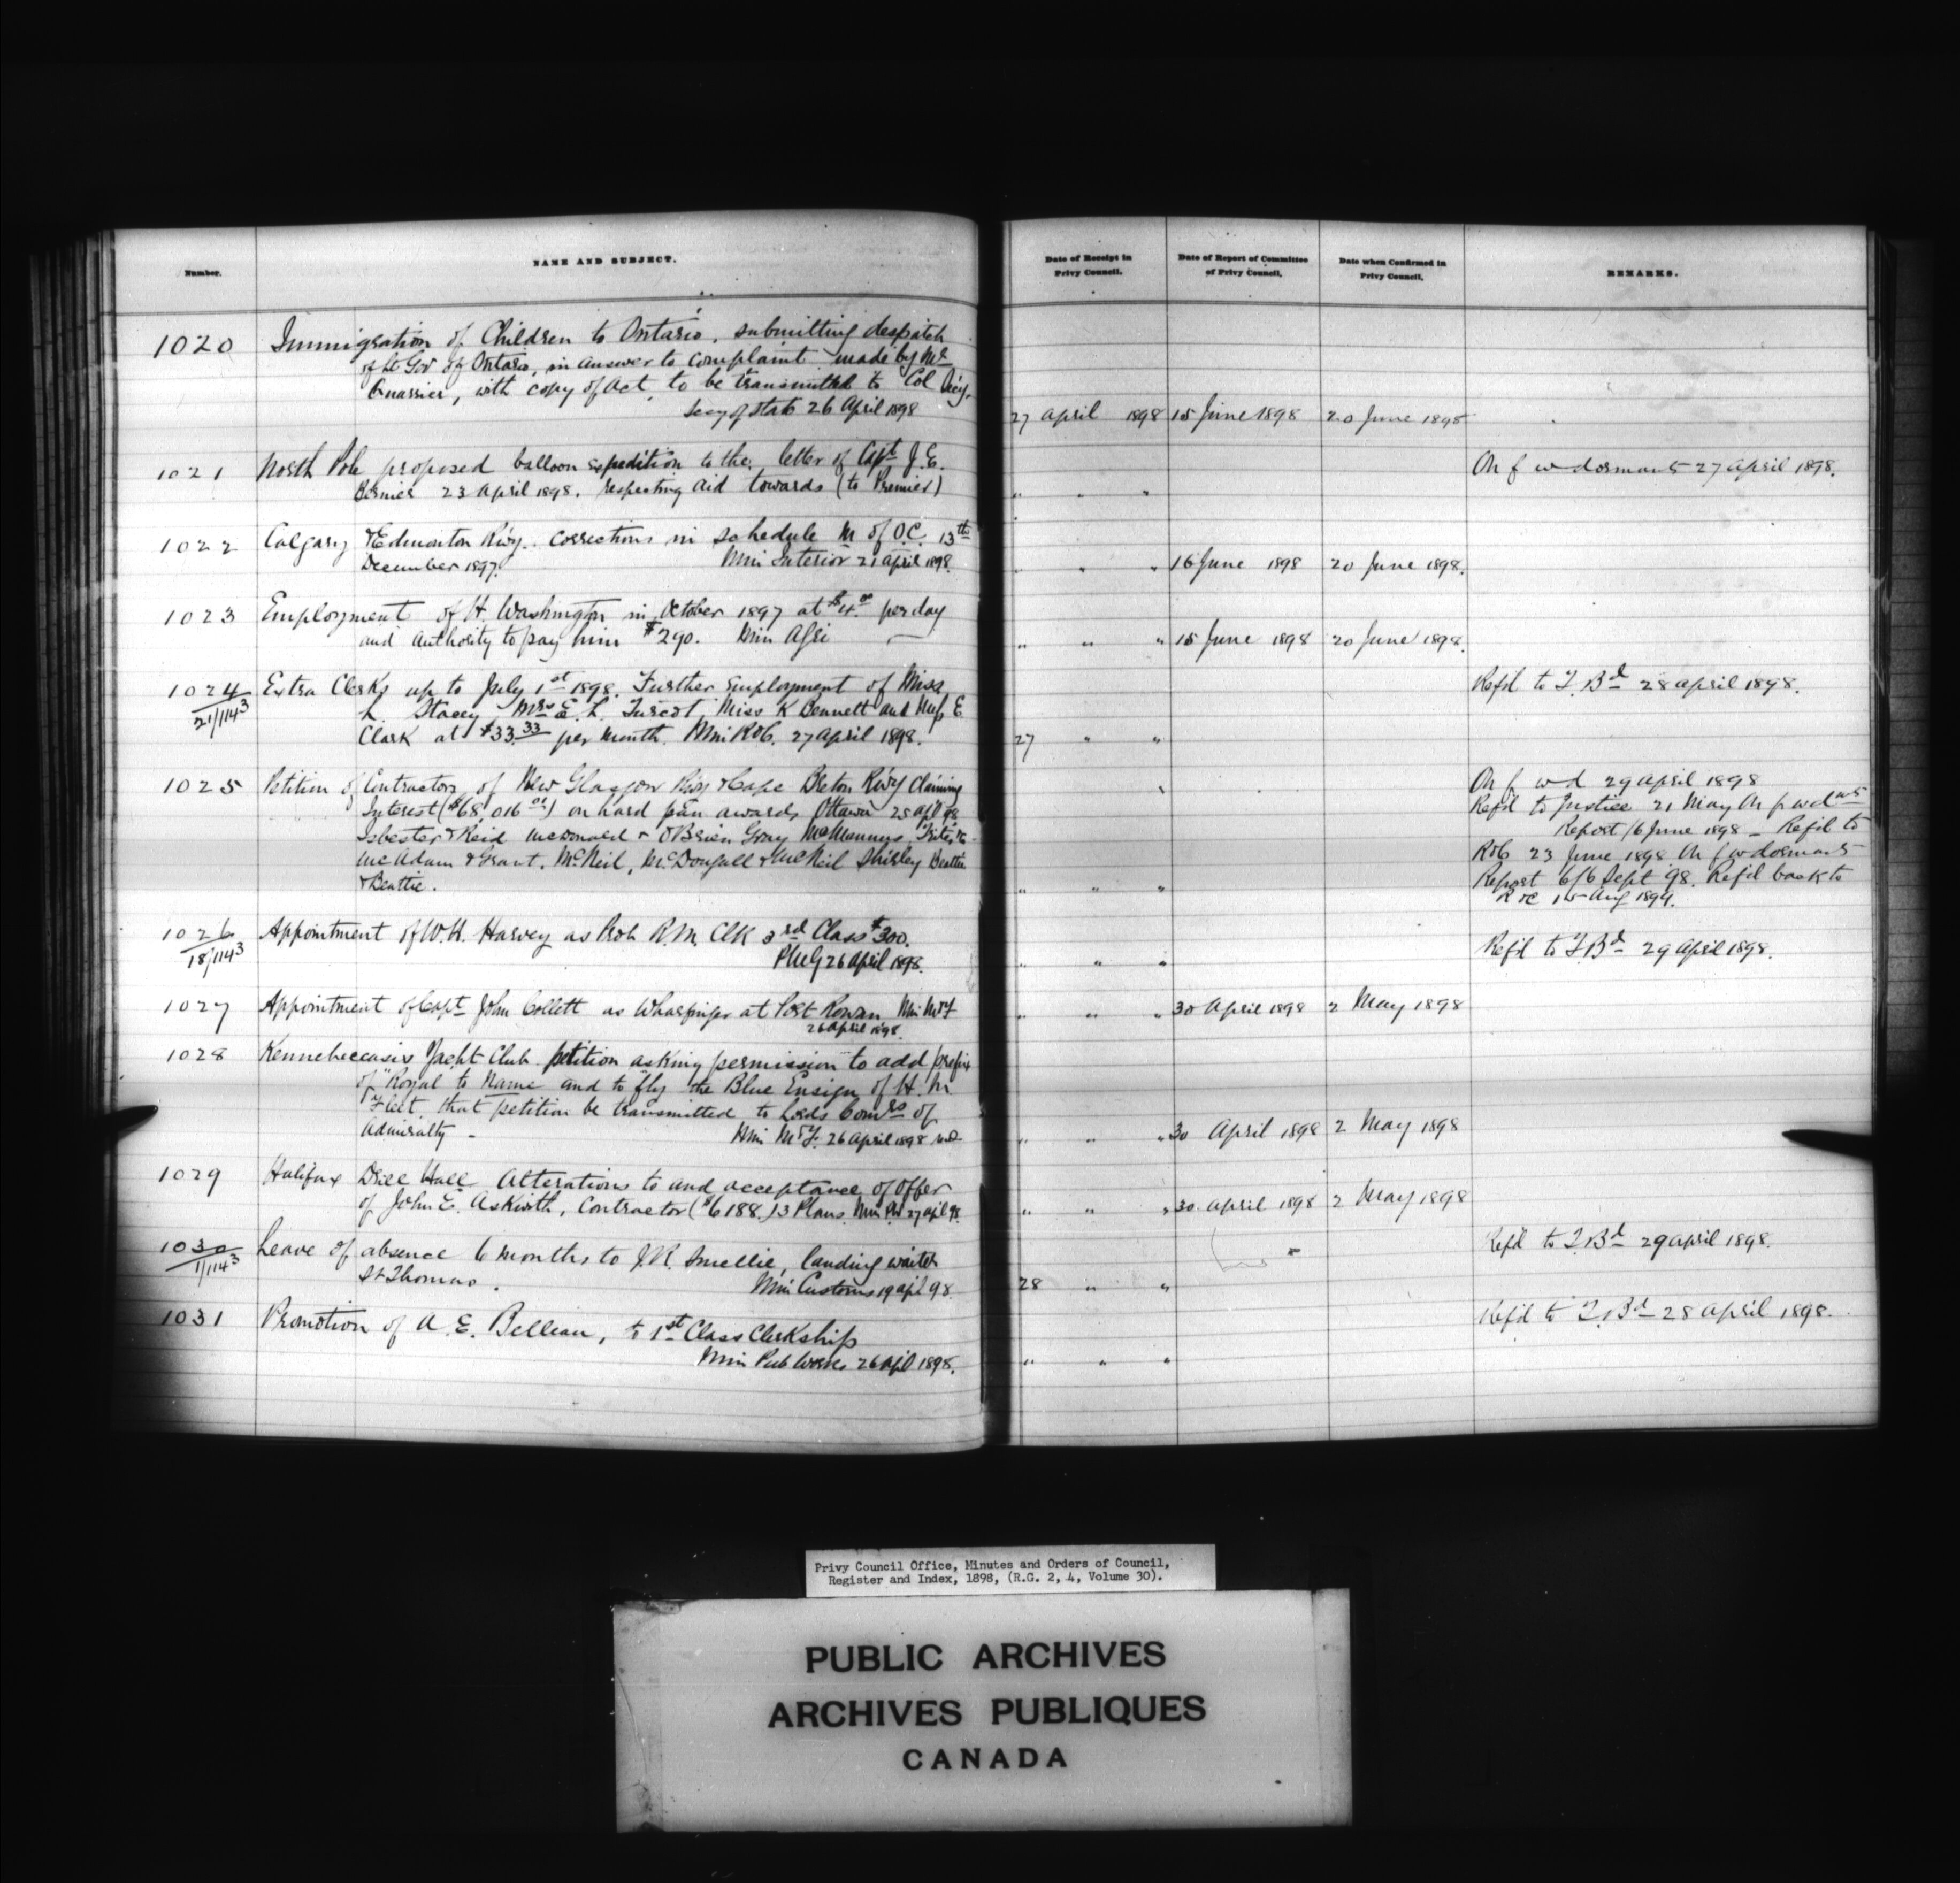 Number.
NAME AND SUBJECT.
Date of Receipt in Privy Council.
Date of Report of Committee of Privy Council,
Date when Confirmed in Privy Council,
REMARKS.
1020 Immigration of Children to Ontario. submitting despatch
of Lt Gov of Ontario, in answer to complaint made by Mr
Quarrier, with copy of Act, to be transmitted to Col Secy.
Secy of State 26 April 1898
27 April 1898 15 June 1898 20 June 1898
1021 North Pole proposed balloon expedition to the, letter of Capt J. E.
Bernier 23 April 1898. respecting aid towards (to Premier)
" " "
On f w dormant 27 April 1898.
1022 Calgary & Edmonton Rwy. corrections in schedule M of O.C. 13th
December 1897. Min Interior 21 April 1898.
" " " 16 June 1898 20 June 1898.
1023 Employment of H. Washington in October 1897 at $4.00 per day
and authority to pay him $290. Min Agri
" " " 15 June 1898 20 June 1898.
1024 Extra Clerks up to July 1st 1898. Further employment of Miss
21/1143 L. Stacey Mrs E. L. Turcot, Miss K Bennett and Miss E
Clark at $33.33 per month. Min R&C. 27 April 1898.
27 " "
Refd to T. Bd 28 April 1898.
1025 Petition of Contractors of New Glasgow Rwy & Cape Breton Rwy claiming
Interest ($68,016.00) on hard pan awards Ottawa 25 apl 98
Isbester & Reid McDonald & O'Brien Gray McManus,
McAdam & Grant. McNeil, McDougall & McNeil Shirley Beattie
& Beattie.
" " "
On f w d 29 April 1898
Refd to Justice 21 May On f w dnt
Report 16 June 1898 _ Refd to
R&C 23 June 1898 On f w dormant
Report 6/6 Sept 98. Refd back to
R &C 15 Aug 1899.
1026 Appointment of W. H. Harvey as Prob R.M. Clk 3rd Class $300.
18/1143 PMG 26 April 1898.
" " "
Refd to T. Bd 29 April 1898.
1027 Appointment of Capt John Collett as Wharfinger at Port Rowan Min M&F
26 April 1898.
" " " 30 April 1898 2 May 1898
1028 Kennebeccasis Yacht Club petition asking permission to add prefix
of "Royal to Name and to fly the Blue Ensign of H. M.
Fleet, that petition be transmitted to Lords Comrs of
Admiralty - Min M&F. 26 April 1898
" " " 30 April 1898 2 May 1898
1029 Halifax Drill Hall Alterations to and acceptance of offer
of John E. Askwith, Contractor ($6188.) 3 Plans. Min PW 27 apl 98.
" " " 30 April 1898 2 May 1898
1030 Leave of absence 6 months to J. R. Smellie, landing waiter
1/1143 St Thomas. Min Customs 19 apl 98
28 " "
Refd to T. Bd 29 April 1898.
1031 Promotion of A. E. Belleau, to 1st Class Clerkship
Min Pub Works 26 apl 1898.
" " "
Refd to T. Bd 28 April 1898.
Privy Council Office, Minutes and Orders of Council,
Register and Index, 1898, (R.G. 2, 4, Volume 30).
PUBLIC ARCHIVES
ARCHIVES PUBLIQUES
CANADA